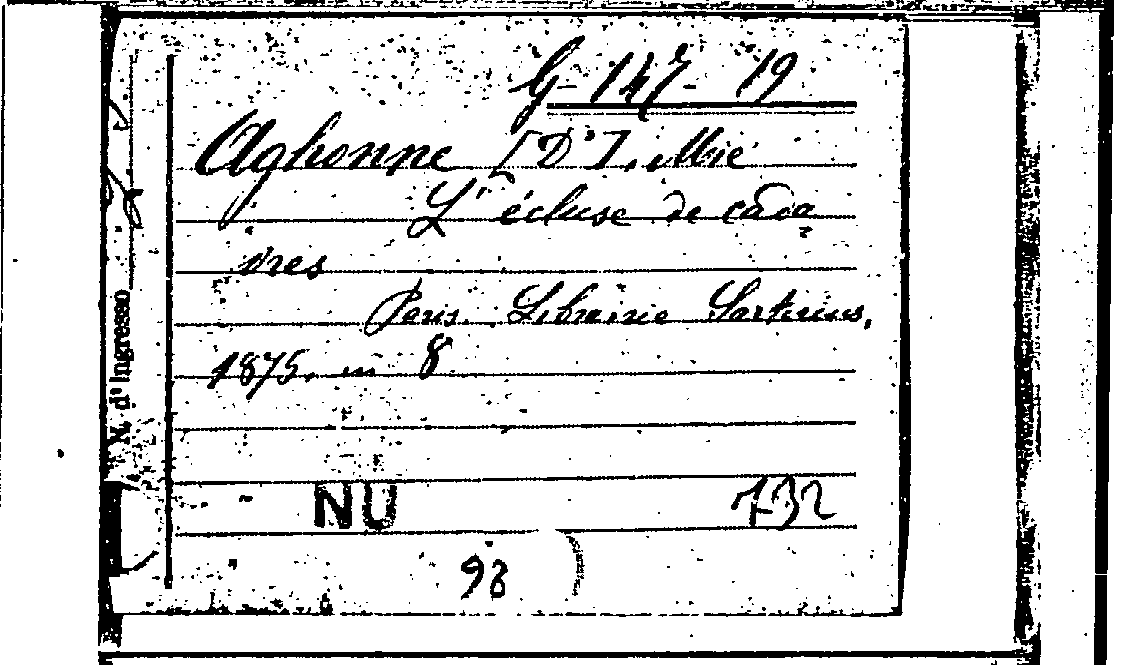 G-147-19
Aghonne [D'], Mie
L'écluse de cada
vres
Paris. Librairie Sartorius,
1875. in 8
NU 732
98
N. d'Ingresso